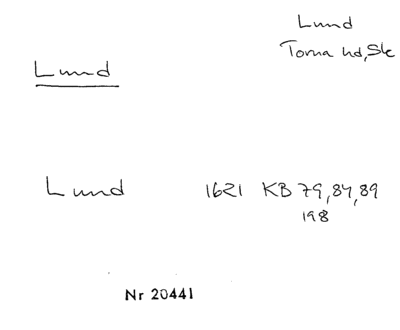 Lund
Torna hd, Sk
Lund
Lund 1621 KB 79, 84, 89
198
Nr 20441